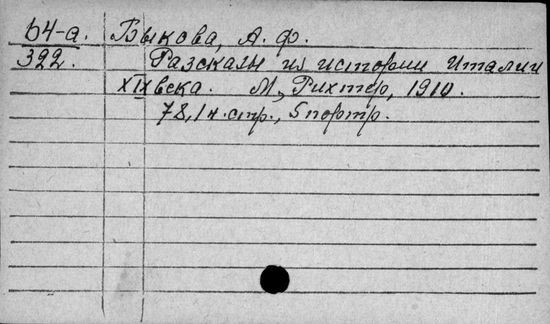 64-а. Быкова, А. Ф.
322. Разсказы из истории Италии
XIX века. М., Рихтер, 1910.
78,1 н. стр., 5 портр.